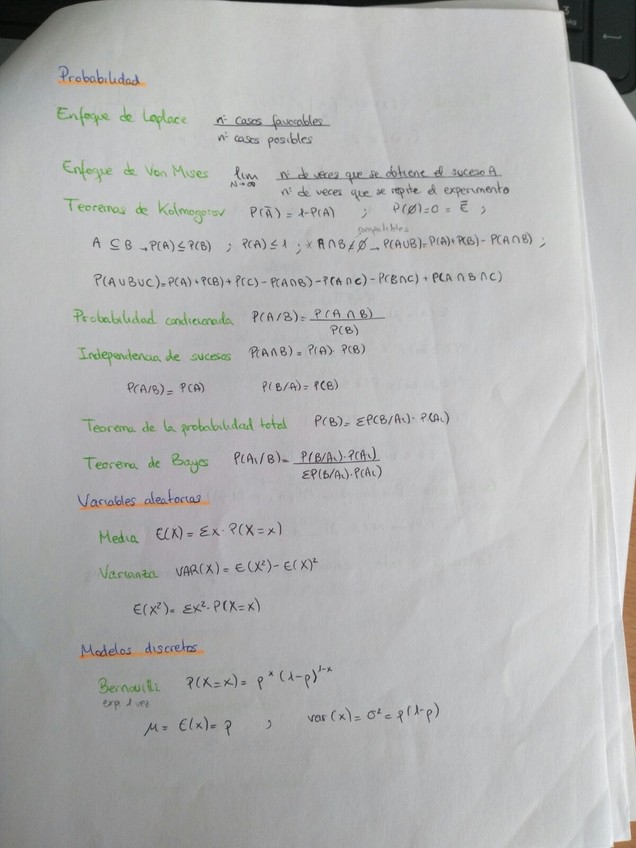 Probabilidad
Enfoque de Laplace nº casos favorables / nº casos posibles
Enfoque de Von Mises lim N→∞ nº de veces que se obtiene el suceso A / nº de veces que se repite el experimento
Teoremas de Kolmogorov P(Ā) = 1-P(A) ; P(∅)=0 = Ē ;
compatibles
A ⊆ B → P(A) ≤ P(B) ; P(A) ≤ 1 ; * A∩B ≠ ∅ → P(A∪B)=P(A)+P(B)-P(A∩B) ;
P(A∪B∪C)=P(A)+P(B)+P(C)-P(A∩B)-P(A∩C)-P(B∩C)+P(A∩B∩C)
Probabilidad condicionada P(A/B)= P(A∩B) / P(B)
Independencia de sucesos P(A∩B) = P(A)·P(B)
P(A/B)= P(A) P(B/A)= P(B)
Teorema de la probabilidad total P(B)= ΣP(B/Ai)·P(Ai)
Teorema de Bayes P(Ai/B)= P(B/Ai)·P(Ai) / ΣP(B/Ai)·P(Ai)
Variables aleatorias
Media E(X)= Σx·P(X=x)
Varianza VAR(X)= E(X²)-E(X)²
E(X²)= Σx²·P(X=x)
Modelos discretos
Bernouilli P(X=x)= pˣ(1-p)¹⁻ˣ
exp. 1 vez
μ= E(x)= p ; var(x)= σ²= p(1-p)